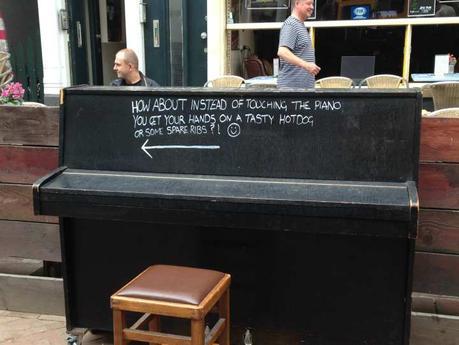 HOW ABOUT INSTEAD OF TOUCHING THE PIANO
YOU GET YOUR HANDS ON A TASTY HOTDOG
OR SOME SPARE RIBS ?!